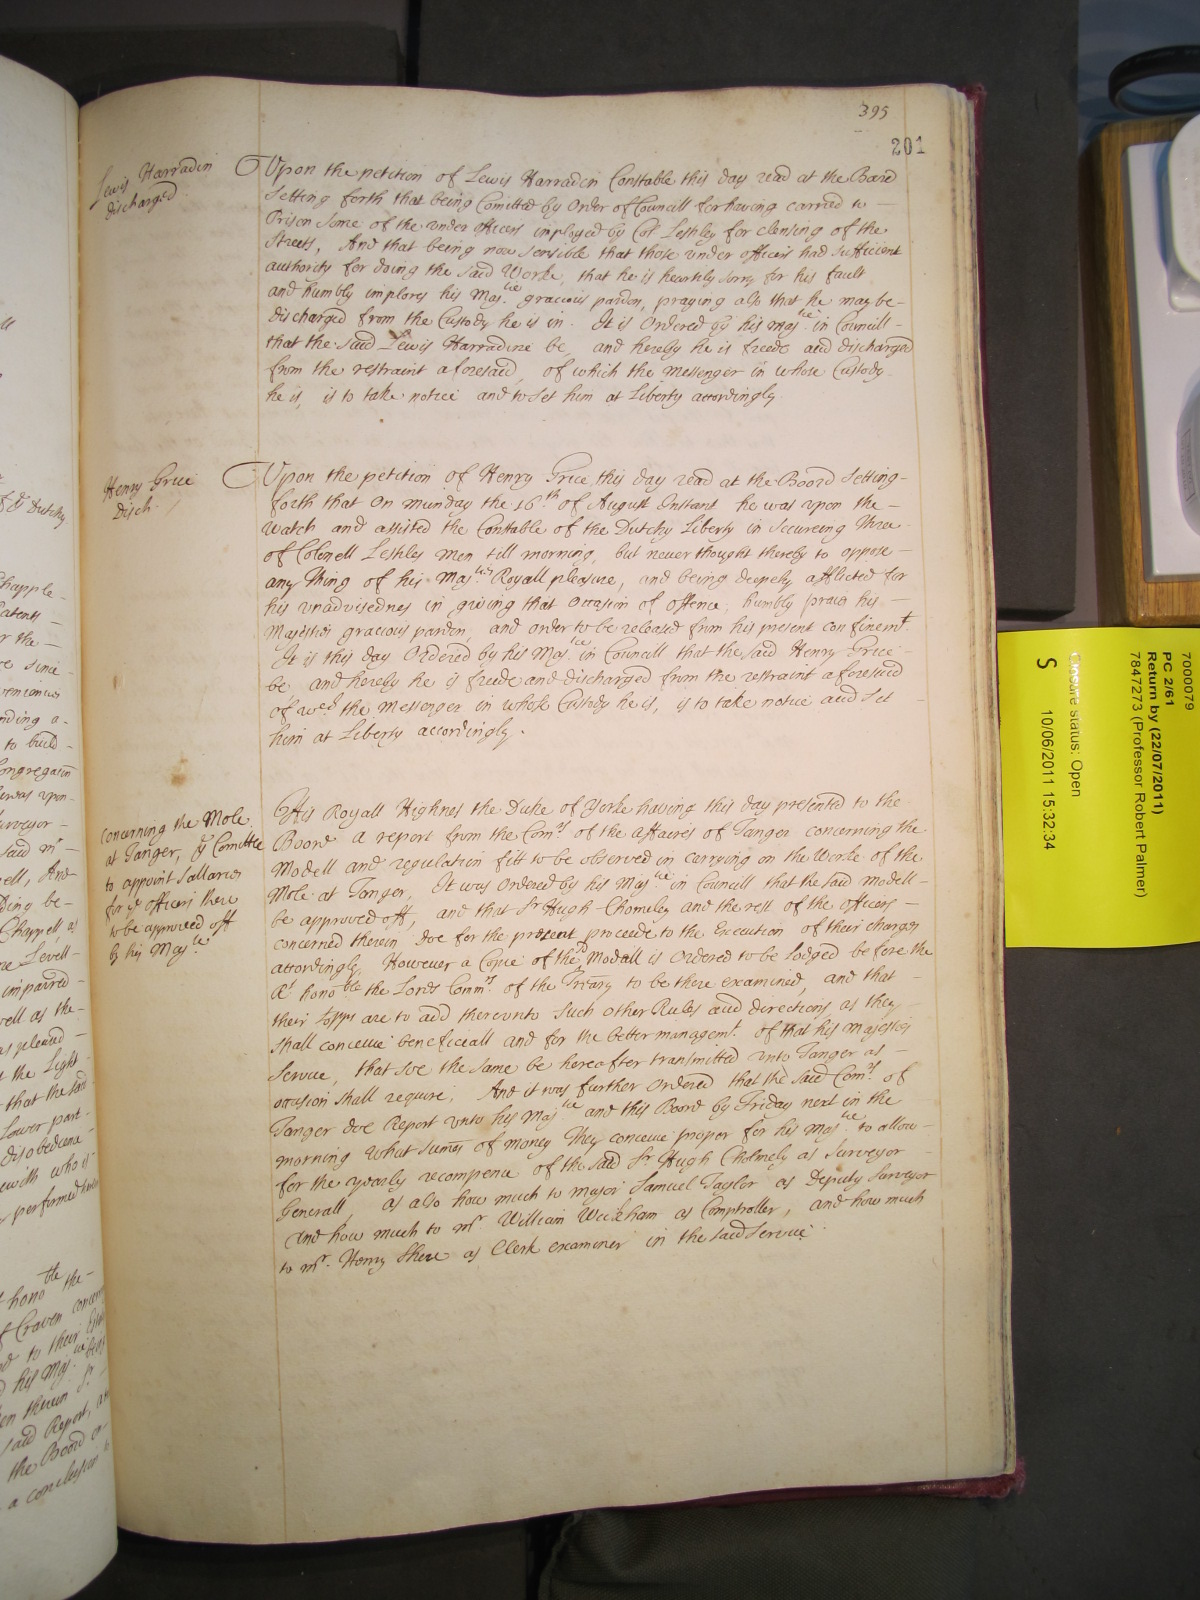 395
201
Lewis Harradin
discharged
Upon the petition of Lewis Harradin Constable this day read at the Board
Setting forth that being Comitted by Order of Councill for having carried to
Prison Some of the under officers imployed by Col Leshley for clensing of the
Streets, And that being now sensible that those under officers had sufficient
authority for doing the said Worke, that he is heartily sorry for his fault
and humbly implores his Maj.tie gracious pardon, praying also that he may be
discharged from the Custody he is in. It is Ordered by his Maj.tie in Councill
that the said Lewis Harradine be, and hereby he is freede and discharged
from the restraint aforesaid, of which the Messenger in whose Custody
he is, is to take notice and to set him at Liberty accordingly.
Henry Grice
Disch.
Upon the petition of Henry Grice this day read at the Board Setting
forth that on munday the 16th of August Instant he was upon the
watch and assisted the Constable of the Dutchy Liberty in Secureing three
of Colonell Leshles men till morning, but never thought thereby to oppose
any thing of his Maj.ties Royall pleasure, and being deepely afflicted for
his unadvisednes in giving that occasion of offence, humbly prays his
Majesties gracious pardon, and order to be released from his present confinemt.
It is this day Ordered by his Maj.tie in Councill that the said Henry Grice
be, and hereby he is freede and discharged from the restraint aforesaid
of wch the Messenger in whose Custody he is, is to take notice and set
him at Liberty accordingly.
Concerning the Mole
at Tanger, & ye Comittee
to appoint Sallaries
for ye officers there
to be approved off
by his Maj.tie
His Royall Highnes the Duke of Yorke having this day presented to the
Board a report from the Com.rs of the affaires of Tanger concerning the
Modell and regulation fitt to be observed in carrying on the Worke of the
Mole at Tanger, It was Ordered by his Maj.tie in Councill that the said modell
be approved off, and that Sr Hugh Chomeley and the rest of the officers
concerned therein doe for the present proceede to the Execution of their charges
accordingly. However a Copie of the Modall is Ordered to be lodged before the
Rt honoble the Lords Comm.rs of the Treãry to be there examined, and that
their Lopps are to add thereunto Such other Rules and directions as they
shall conceive beneficiall and for the better managemt. of that his Majesties
Service, that soe the same be hereafter transmitted unto Tanger as
occasion shall require. And it was further Ordered that the said Com.rs of
Tanger doe Report unto his Maj.tie and this Board by Friday next in the
morning what Sumes of money they conceive proper for his Maj.tie to allow
for the yearly recompence of the said Sr. Hugh Cholmely as Surveyor
Generall, as also how much to major Samuel Taylor as Deputy Surveyor
and how much to mr. William Wickham as Comptroller, and how much
to mr. Henry Shere as Clerk examiner in the said Service.
7000079
PC 2/61
Return by (22/07/2011)
7847273 (Professor Robert Palmer)
Closure status: Open
S 10/06/2011 15:32:34